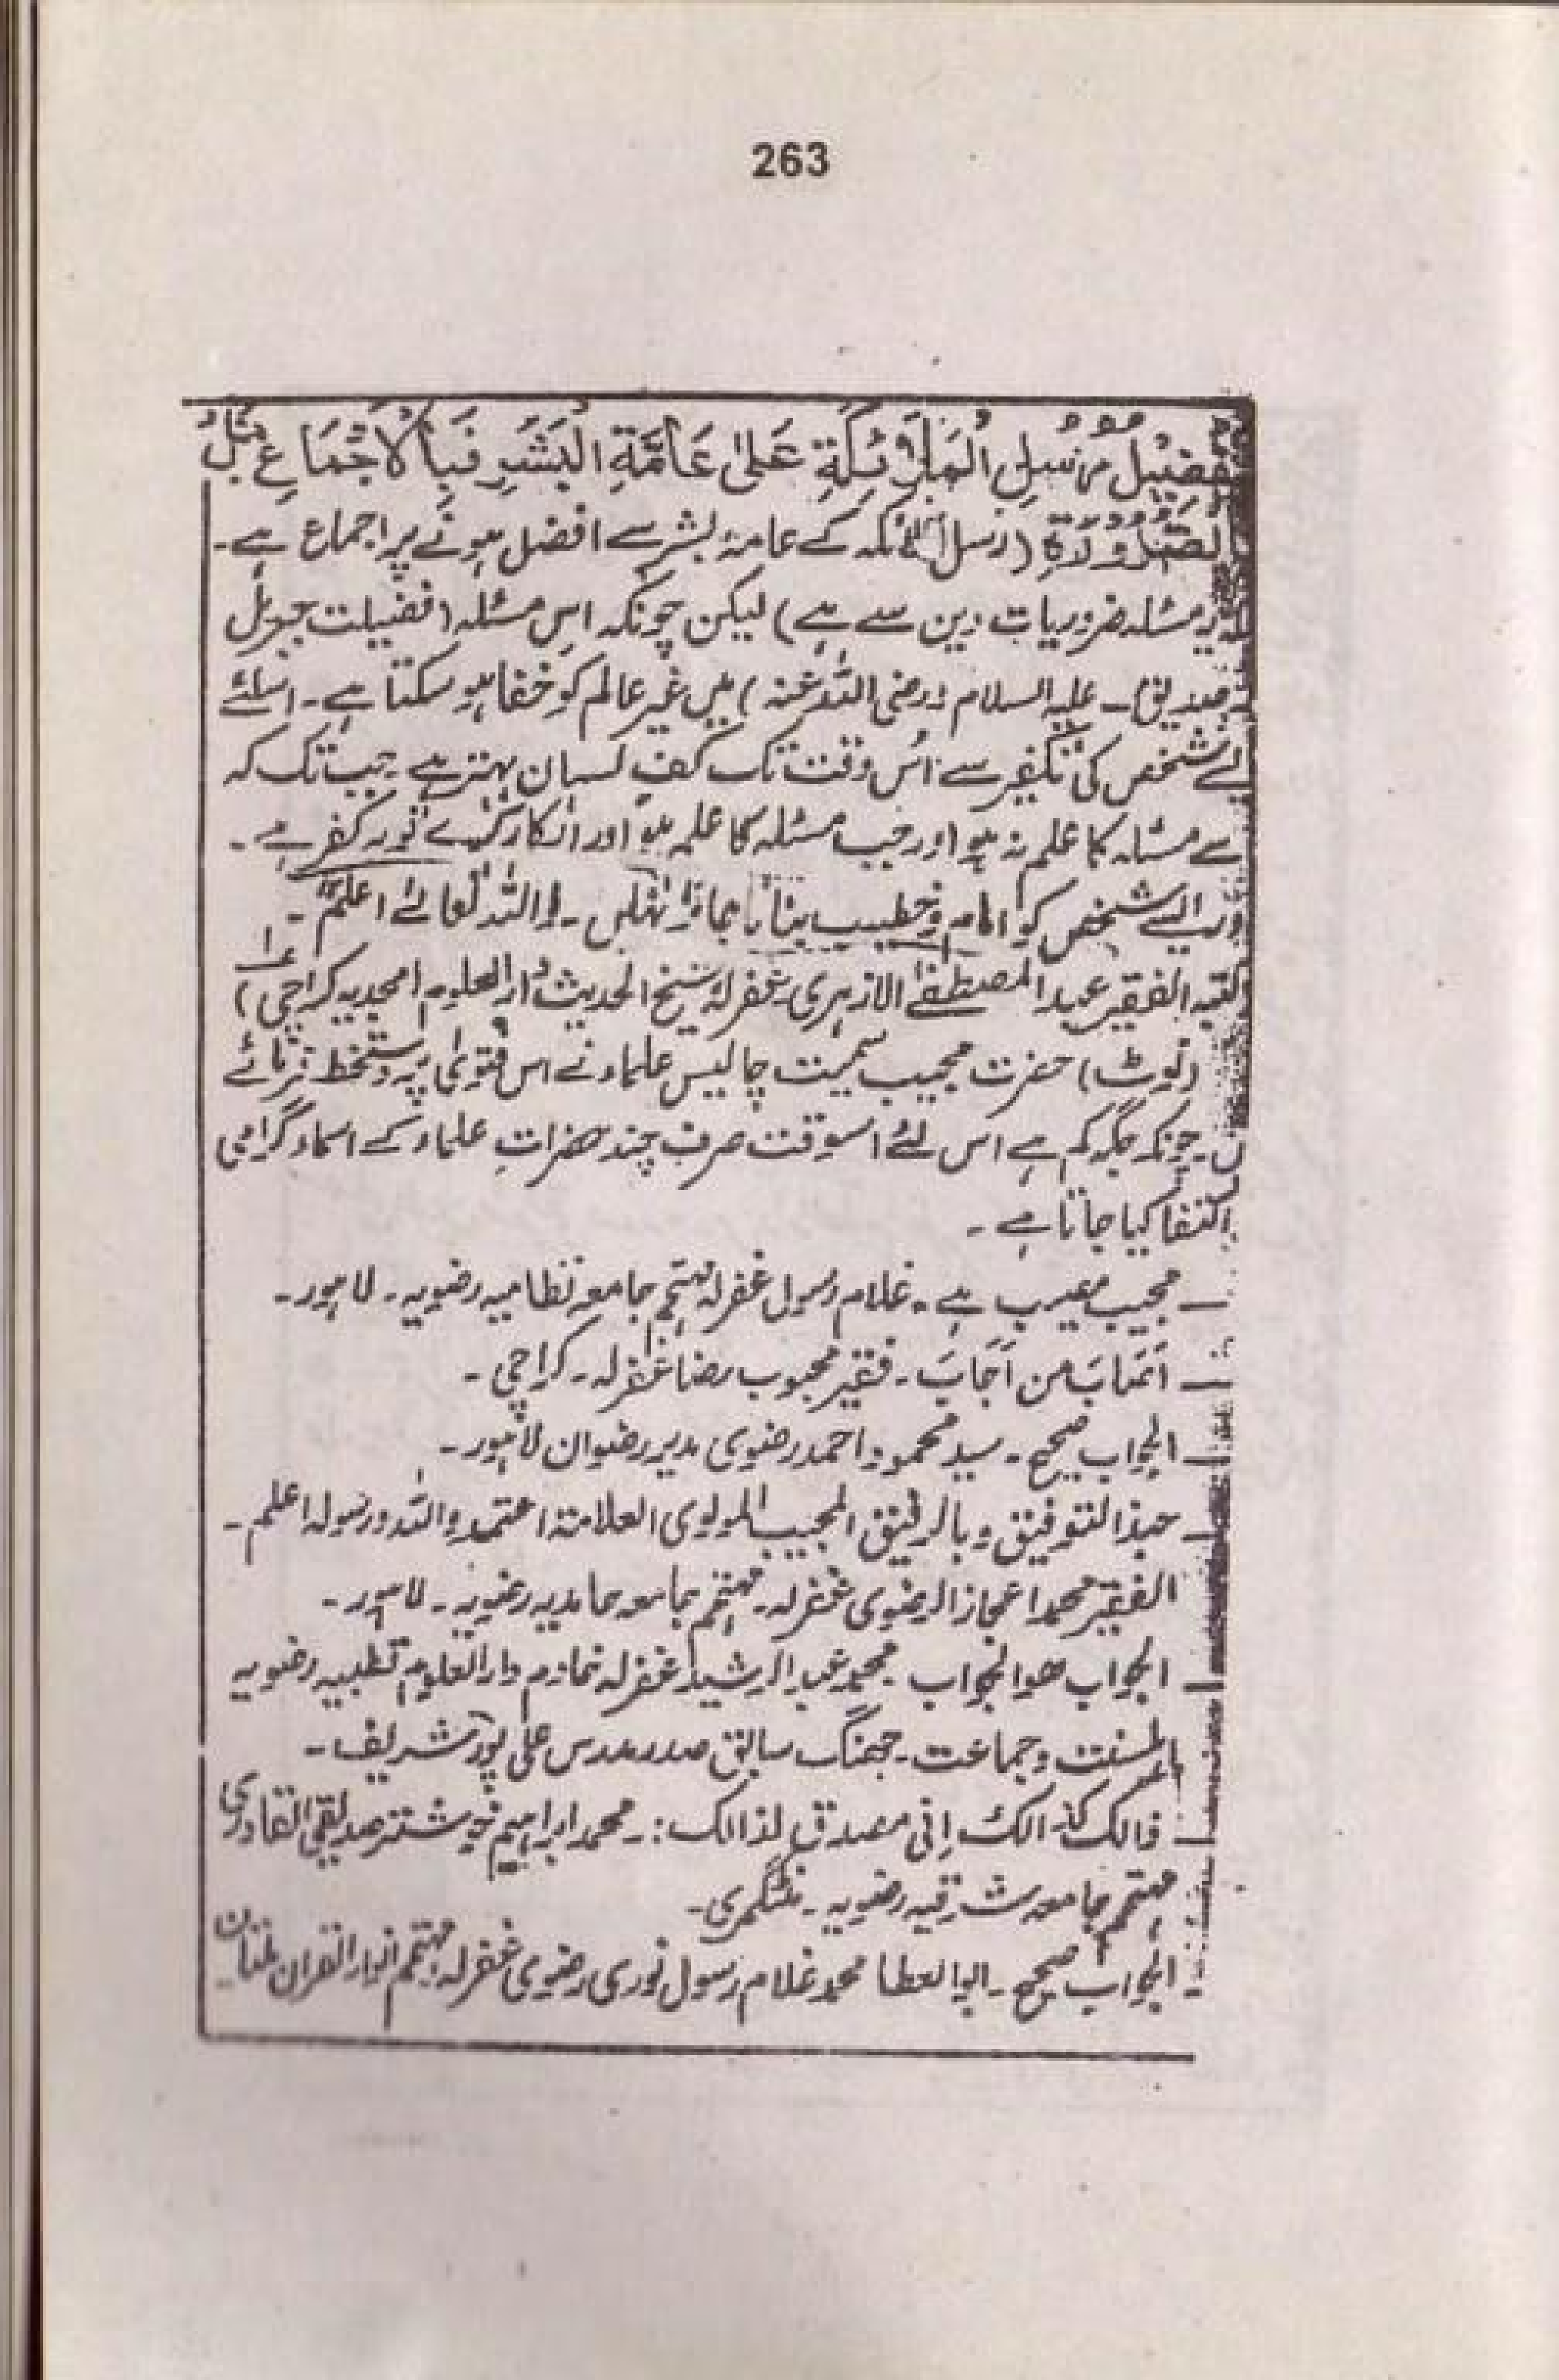 263
تفضیل رسل الملائکۃ علیٰ عامۃ البشر فبالاجماع بل
بالضرورۃ (رسل ملائکہ کے عامۂ بشر سے افضل ہونے پر اجماع ہے۔
یہ مسئلہ ضروریات دین سے ہے) لیکن چونکہ اس مسئلہ (فضیلت جبریل
بر صدیق)۔ علیہ السلام و رضی اللہ عنہ) میں غیر عالم کو خفا ہو سکتا ہے۔ اسلئے
ایسے شخص کی تکفیر سے اُس وقت تک کف لسان بہتر ہے جب تک کہ
اسے مسئلہ کا علم نہ ہو اور جب مسئلہ کا علم ہو اور انکار کرے تو یہ کفر ہے۔
اور ایسے شخص کو امام و خطیب بنانا جائز نہیں۔ واللہ تعالےٰ اعلم۔
الفقیر عبدالمصطفےٰ الازہری غفرلہٗ شیخ الحدیث دارالعلوم امجدیہ کراچی)
(نوٹ) حضرت مجیب سمیت چالیس علماء نے اس فتویٰ پر دستخط فرمائے
ہیں۔ چونکہ جگہ کم ہے اس لئے اسوقت صرف چند حضراتِ علماء کے اسماء گرامی
اکتفا کیا جاتا ہے۔
— مجیب مصیب ہے۔ غلام رسول غفرلہ مہتمم جامعہ نظامیہ رضویہ۔ لاہور۔
— اَصَابَ من اَجَابَ۔ فقیر محبوب رضا غفرلہ۔ کراچی۔
— الجواب صحیح۔ سید محمود احمد رضوی مدیر رضوان لاہور۔
— حبذا التوفیق وبالرفیق المجیب المولوی العلامۃ اعتمد واللہ ورسولہ اعلم۔
الفقیر محمد اعجاز الرضوی غفرلہ۔ مہتمم جامعہ حامدیہ رضویہ۔ لاہور۔
— الجواب ھو الجواب۔ محمد عبدالرشید غفرلہ خادم دارالعلوم قطبیہ رضویہ
اہلسنت وجماعت۔ جھنگ سابق صدر مدرس علی پور شریف۔
— ذالک کذالک اِنی مصدق لذالک:۔ محمد ابراہیم خوشتر صدیقی القادری
مہتمم جامعہ شرقیہ رضویہ۔ منٹگمری۔
— الجواب صحیح۔ ابوالعطا محمد غلام رسول نوری رضوی غفرلہ مہتمم انوار القرآن ملتان